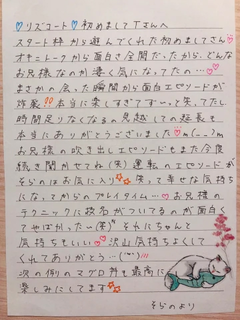 ♡リズコート♡初めましてTさんへ
スタート枠から遊んでくれた初めましてさん♡
オキニトークから面白さ全開だったから、どんな
お兄様なのか凄く気になってたの…♡
まさかの会った瞬間から面白エピソードが
炸裂!!本当に楽しすぎてずーっと笑ってたし
時間足りなくなるの見越しての延長も
本当にありがとうございましたm(__)m
お兄様の吹き出しエピソードもまた今度
続き聞かせてね(笑)運転のエピソードが
そらのはお気に入り 笑って幸せな気持ち
になってからのプレイタイム…♡お兄様の
テクニックに技名がついてるのが面白く
てやばかった〜(笑)それにちゃんと
気持ちもいい♡沢山気持ちよくして
くれてありがとう…(´꒳`)♡
次の例のマグロ丼も最高に
楽しみにしてます
そらのより